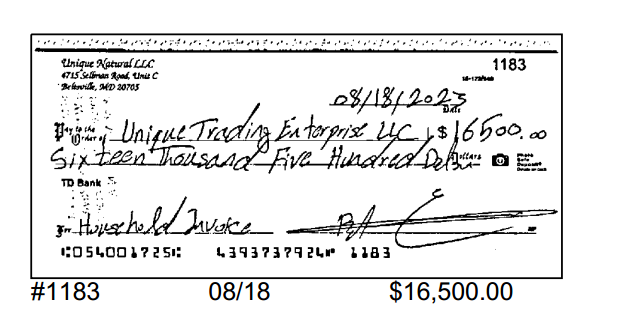 Unique Natural LLC
4715 Sellman Road, Unit C
Beltsville, MD 20705
1183
08/18/2023
Date
Pay to the Order of Unique Trading Enterprise LLC $ 16500.00
Sixteen Thousand Five Hundred Dollars
Photo Safe Deposit
TD Bank
For Household Invoice
⑆054001725⑆ 4393737924⑈ 1183
#1183 08/18 $16,500.00